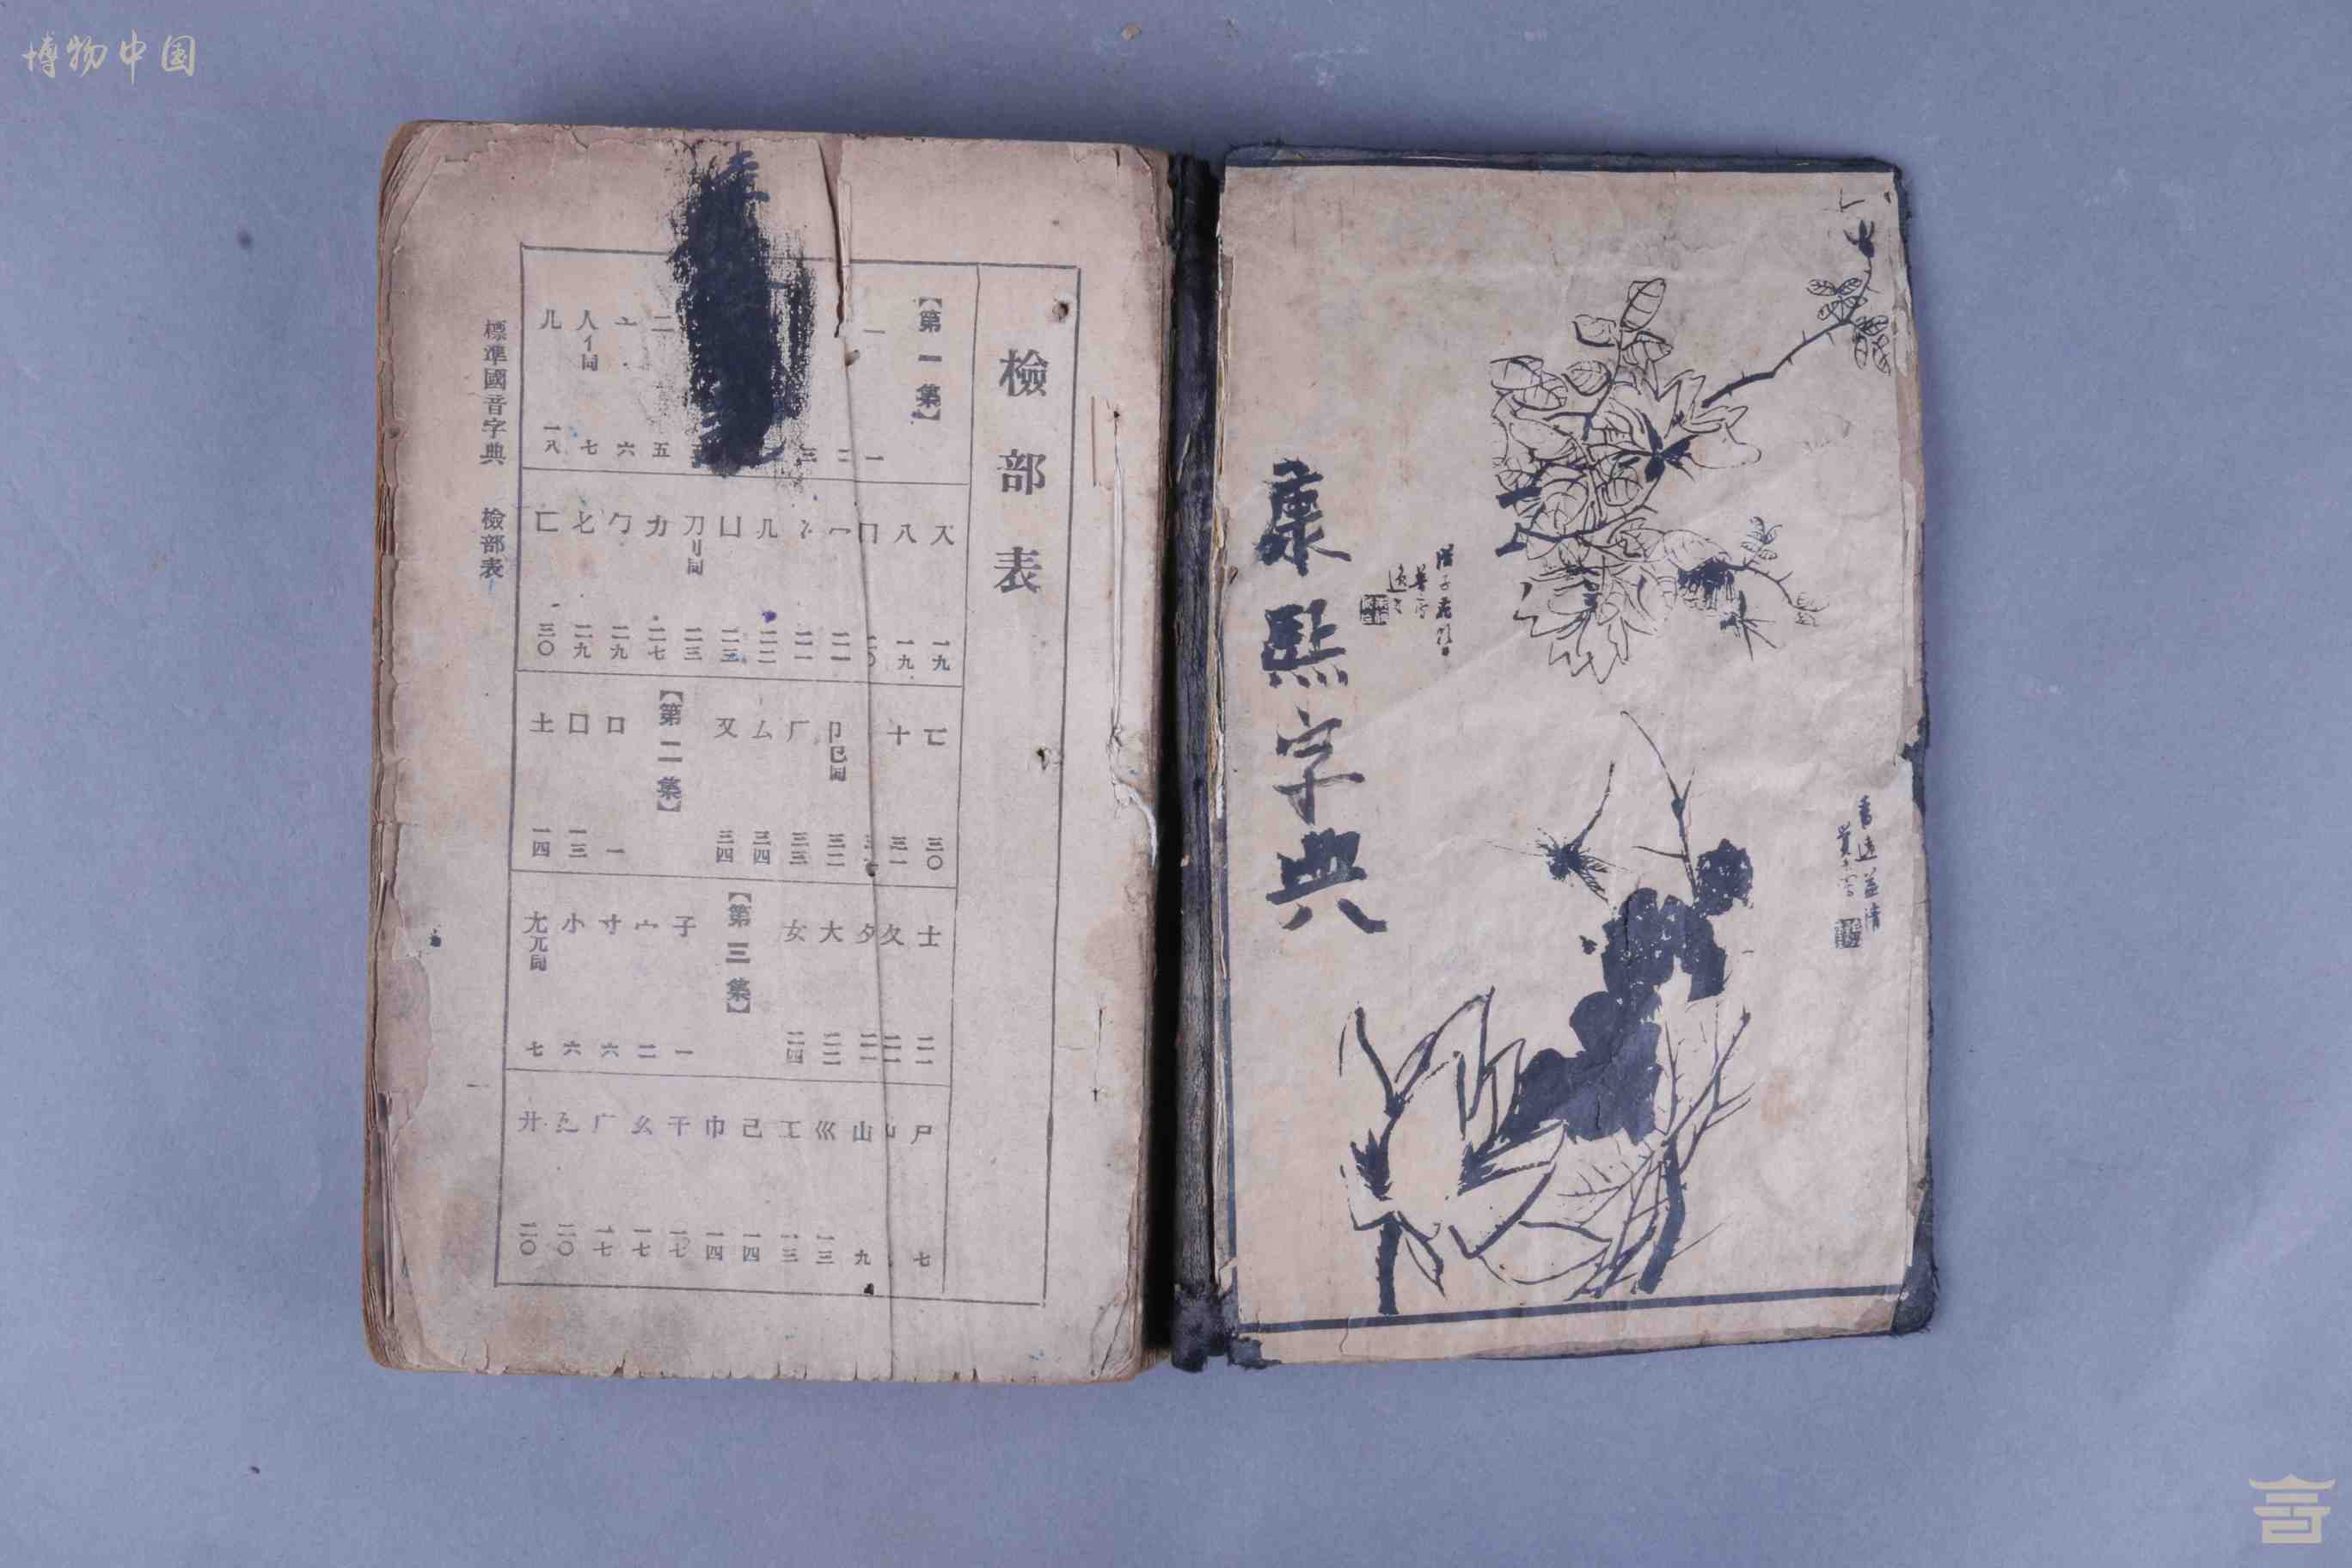 博物中国
康熙字典
香遠益清
檢部表
【第一集】
一 一
二 五
亠 六
人亻同 七
儿 一八
入 一九
八 一九
冂
冖 二一
冫 二一
几 二二
凵 二三
刀刂同 二三
力 二七
勹 二九
匕 二九
匚 三〇
匸 三〇
十 三一
卩㔾同 三二
厂 三三
厶 三四
又 三四
【第二集】
口 一
囗 一三
土 一四
士 二一
夂 二一
夕 二一
大 二二
女 二四
【第三集】
子 一
宀 二
寸 六
小 六
尢兀同 七
尸 七
山 九
巛 一三
工 一三
己 一四
巾 一四
干 一七
幺 一七
广 一七
廴 二〇
廾 二〇
標準國音字典 檢部表